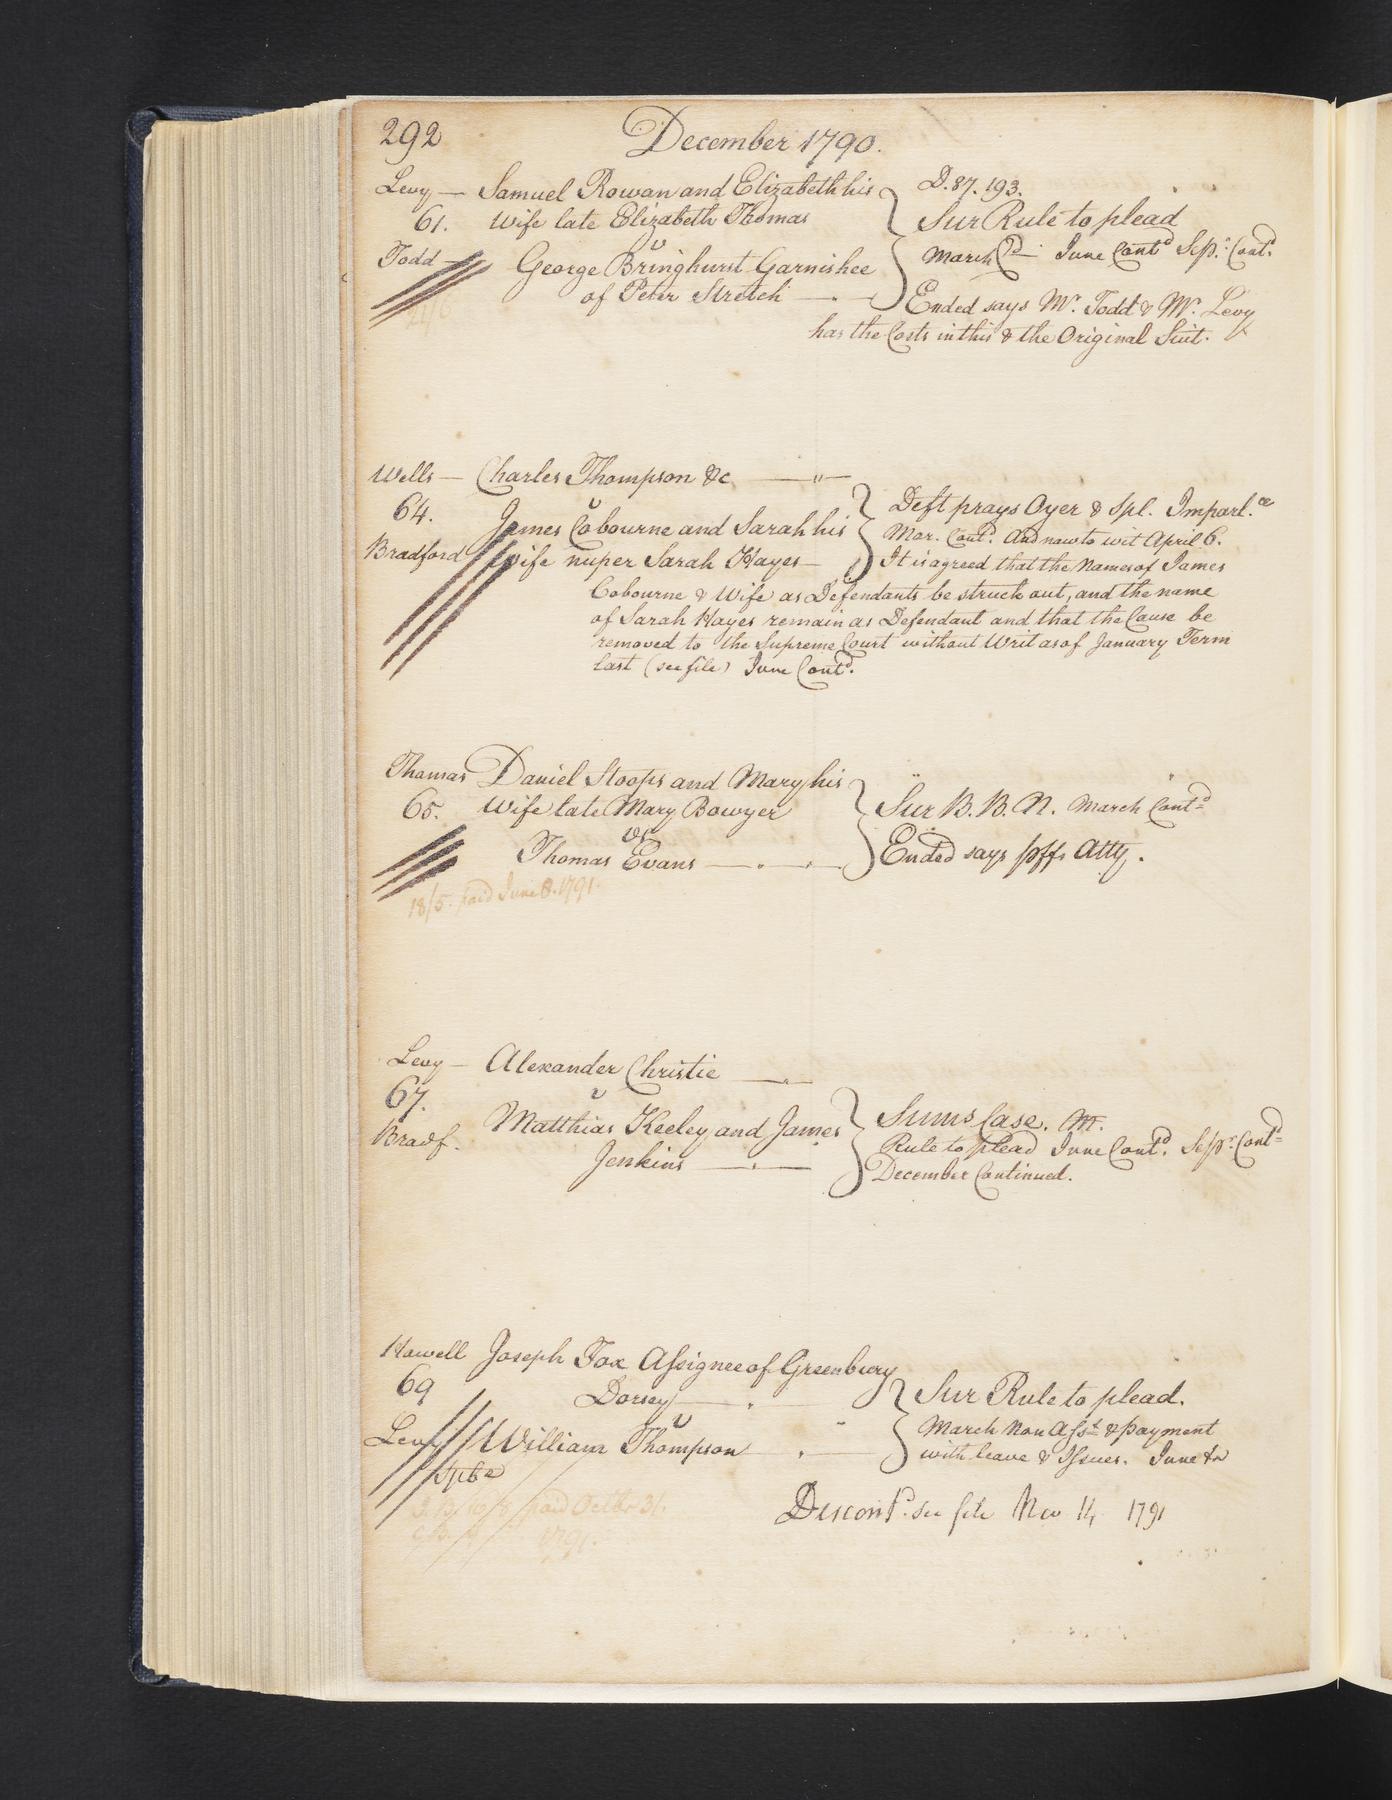 292 December 1790.
Levy — Samuel Rowan and Elizabeth his D. 87. 193.
61. Wife late Elizabeth Thomas Sur Rule to plead
v March Cd June Contd Sepr. Contd.
Todd — George Bringhurst Garnishee
of Peter Stretch Ended says Mr. Todd & Mr. Levy
has the Costs in this & the Original Suit.
Wells — Charles Thompson &c
64. v Deft prays Oyer & Spl. Imparl.ce
James Cobourne and Sarah his Mar. Contd. And now to wit April 6.
Bradford Wife nuper Sarah Hayes — It is agreed that the Names of James
Cobourne & Wife as Defendants be struck out, and the name
of Sarah Hayes remain as Defendant and that the Cause be
removed to the Supreme Court without Writ as of January Term
last (see file) June Contd.
Thomas Daniel Stoops and Mary his
65. Wife late Mary Bowyer Sur B. B. N. March Contd
vs
Thomas Evans Ended says plffs Atty.
18/5. paid June 8. 1791.
Levy — Alexander Christie
67. v Sums Case. M.
Bradf. Matthias Keeley and James Rule to plead June Contd. Sepr. Contd
Jenkins December Continued.
Howell Joseph Fox Assignee of Greenbury
69 Dorsey Sur Rule to plead.
v March Non Asst & payment
Levy William Thompson with leave & Issues. June
Discontd. see file Nov 14 1791
paid Octbr 31.
1791.